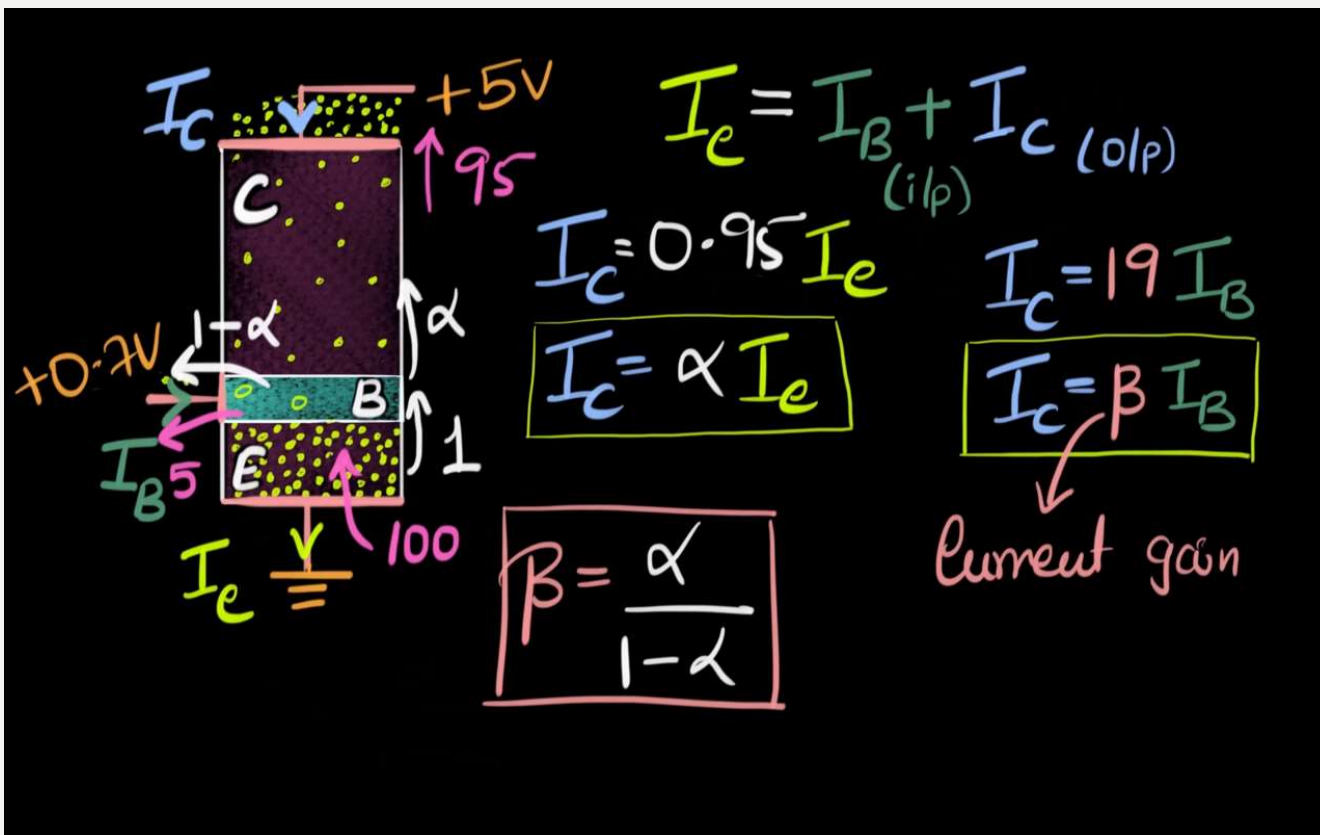 I_C
+5V
95
C
1-α
α
+0.7V
B
I_B 5
E
1
100
I_e
I_e = I_B + I_C (o/p)
(i/p)
I_C = 0.95 I_e
I_C = α I_e
I_C = 19 I_B
I_C = β I_B
Current gain
β = α
1-α